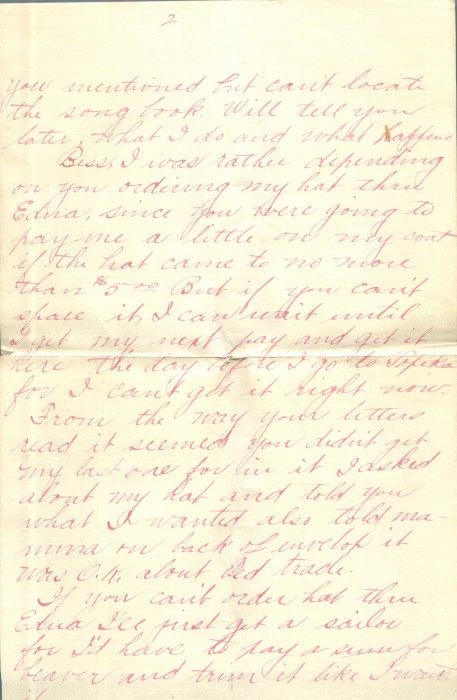 2
you mentioned but can't locate
the song book. Will tell you
later what I do and what happens
Bess, I was rather depending
on you ordering my hat thru
Edna, since you were going to
pay me a little on my coat
if the hat came to no more
than $5.00 But if you can't
spare it, I can wait until
I get my next pay and get it
here the day before I go to Topeka
for I can't get it right now.
From the way your letters
read it seemed you didn't get
my last one for in it I asked
about my hat and told you
what I wanted also told ma-
mma on back of envelop it
was O.K. about bed trade.
If you can't order hat thru
Edna I'll just get a sailor
for I'd have to pay a sum for
beaver and trim it like I want
it